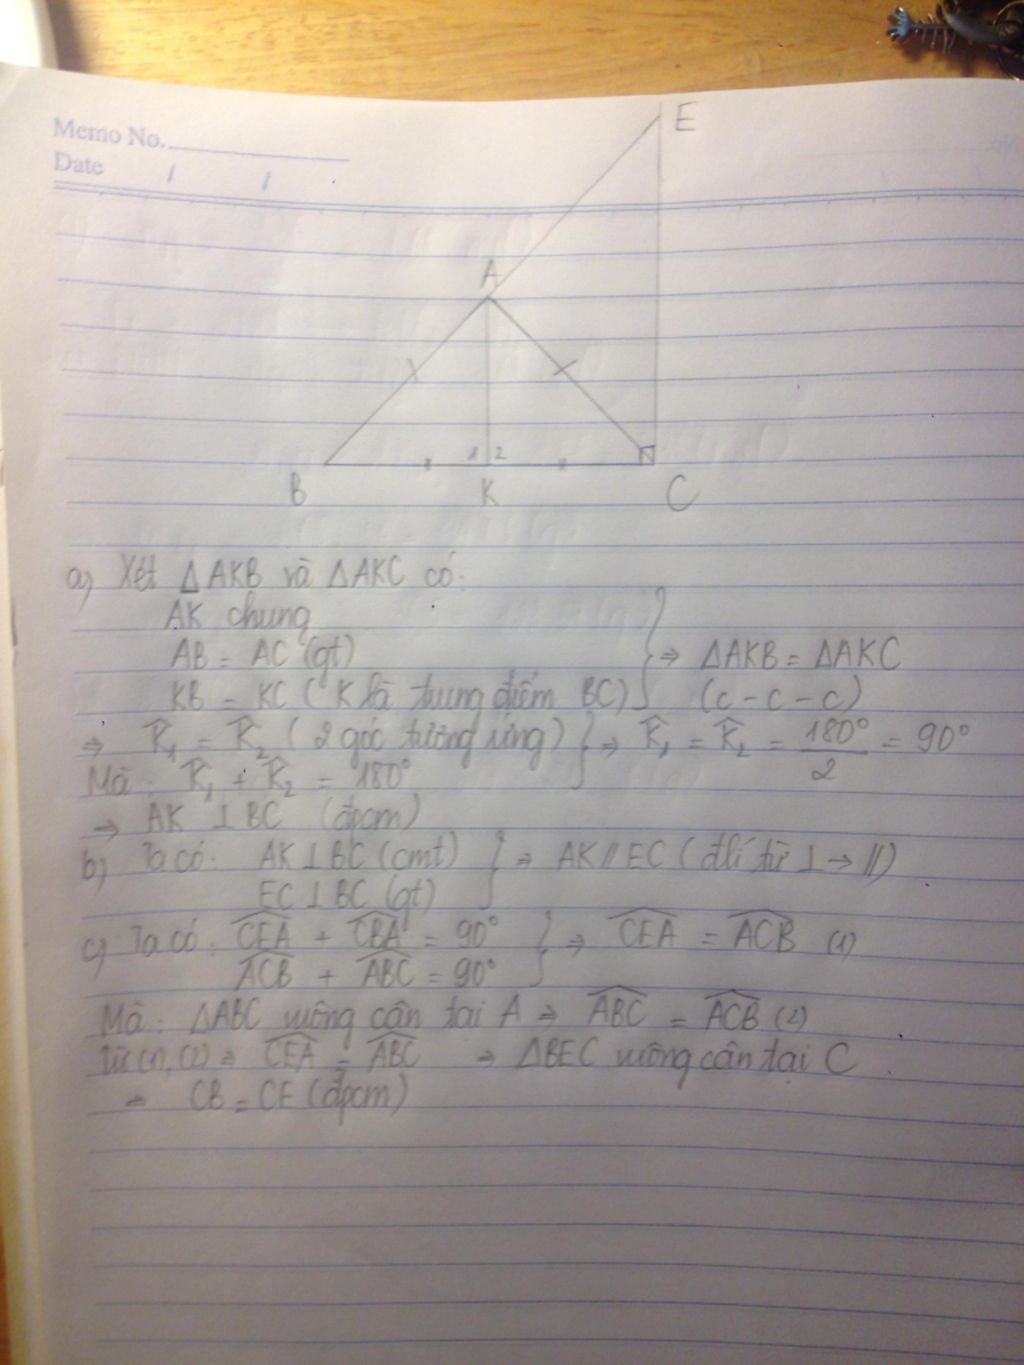 Memo No.
Date / /
E
A
1 2
B K C
a) Xét ΔAKB và ΔAKC có:
AK chung
AB = AC (gt)
KB = KC (K là trung điểm BC) } ⇒ ΔAKB = ΔAKC (c-c-c)
⇒ K̂₁ = K̂₂ (2 góc tương ứng)
Mà: K̂₁ + K̂₂ = 180° } ⇒ K̂₁ = K̂₂ = 180°/2 = 90°
⇒ AK ⊥ BC (đpcm)
b) Ta có: AK ⊥ BC (cmt)
EC ⊥ BC (gt) } ⇒ AK // EC (đlí từ ⊥ → //)
c) Ta có: \widehat{CEA} + \widehat{CBA} = 90°
\widehat{ACB} + \widehat{ABC} = 90° } ⇒ \widehat{CEA} = \widehat{ACB} (1)
Mà: ΔABC vuông cân tại A ⇒ \widehat{ABC} = \widehat{ACB} (2)
Từ (1), (2) ⇒ \widehat{CEA} = \widehat{ABC} ⇒ ΔBEC vuông cân tại C
⇒ CB = CE (đpcm)